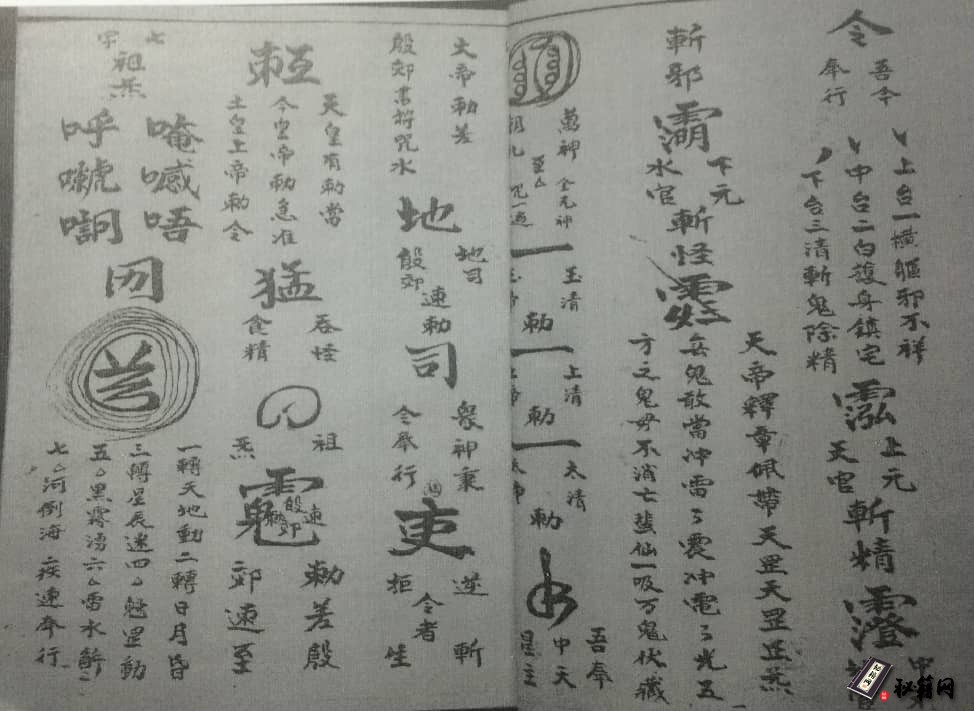 令
吾今
奉行
上台一橫驅邪不祥
中台二白護身鎮宅
下台三清斬鬼除精
泓
上元
天官
斬精
澄
斬邪
下元
水官
斬怪
天帝釋章佩帶天罡天罡正炁
無鬼敢當冲雷雷震冲電電光五
方之鬼毋不消亡蜚仙一吸万鬼伏藏
萬神
朝礼
玉清
勅
上清
勅
太清
勅
吾奉
中天
星主
大帝勅差
殷郊書符咒水
地
地司
殷郊
速勅
司
眾神秉
令奉行
吏
逆
令者
拒
斬
生
天皇有勅當
今皇帝勅急准
土皇上帝勅令
猛
吞怪
食精
祖
炁
殷郊
速
勅差殷
郊速至
七字
祖炁
唵㘕唔
呼
一轉天地動二轉日月昏
三轉星辰迷四魁罡動
五黑霧湧六雷水解
七河倒海疾速奉行
秘籍网